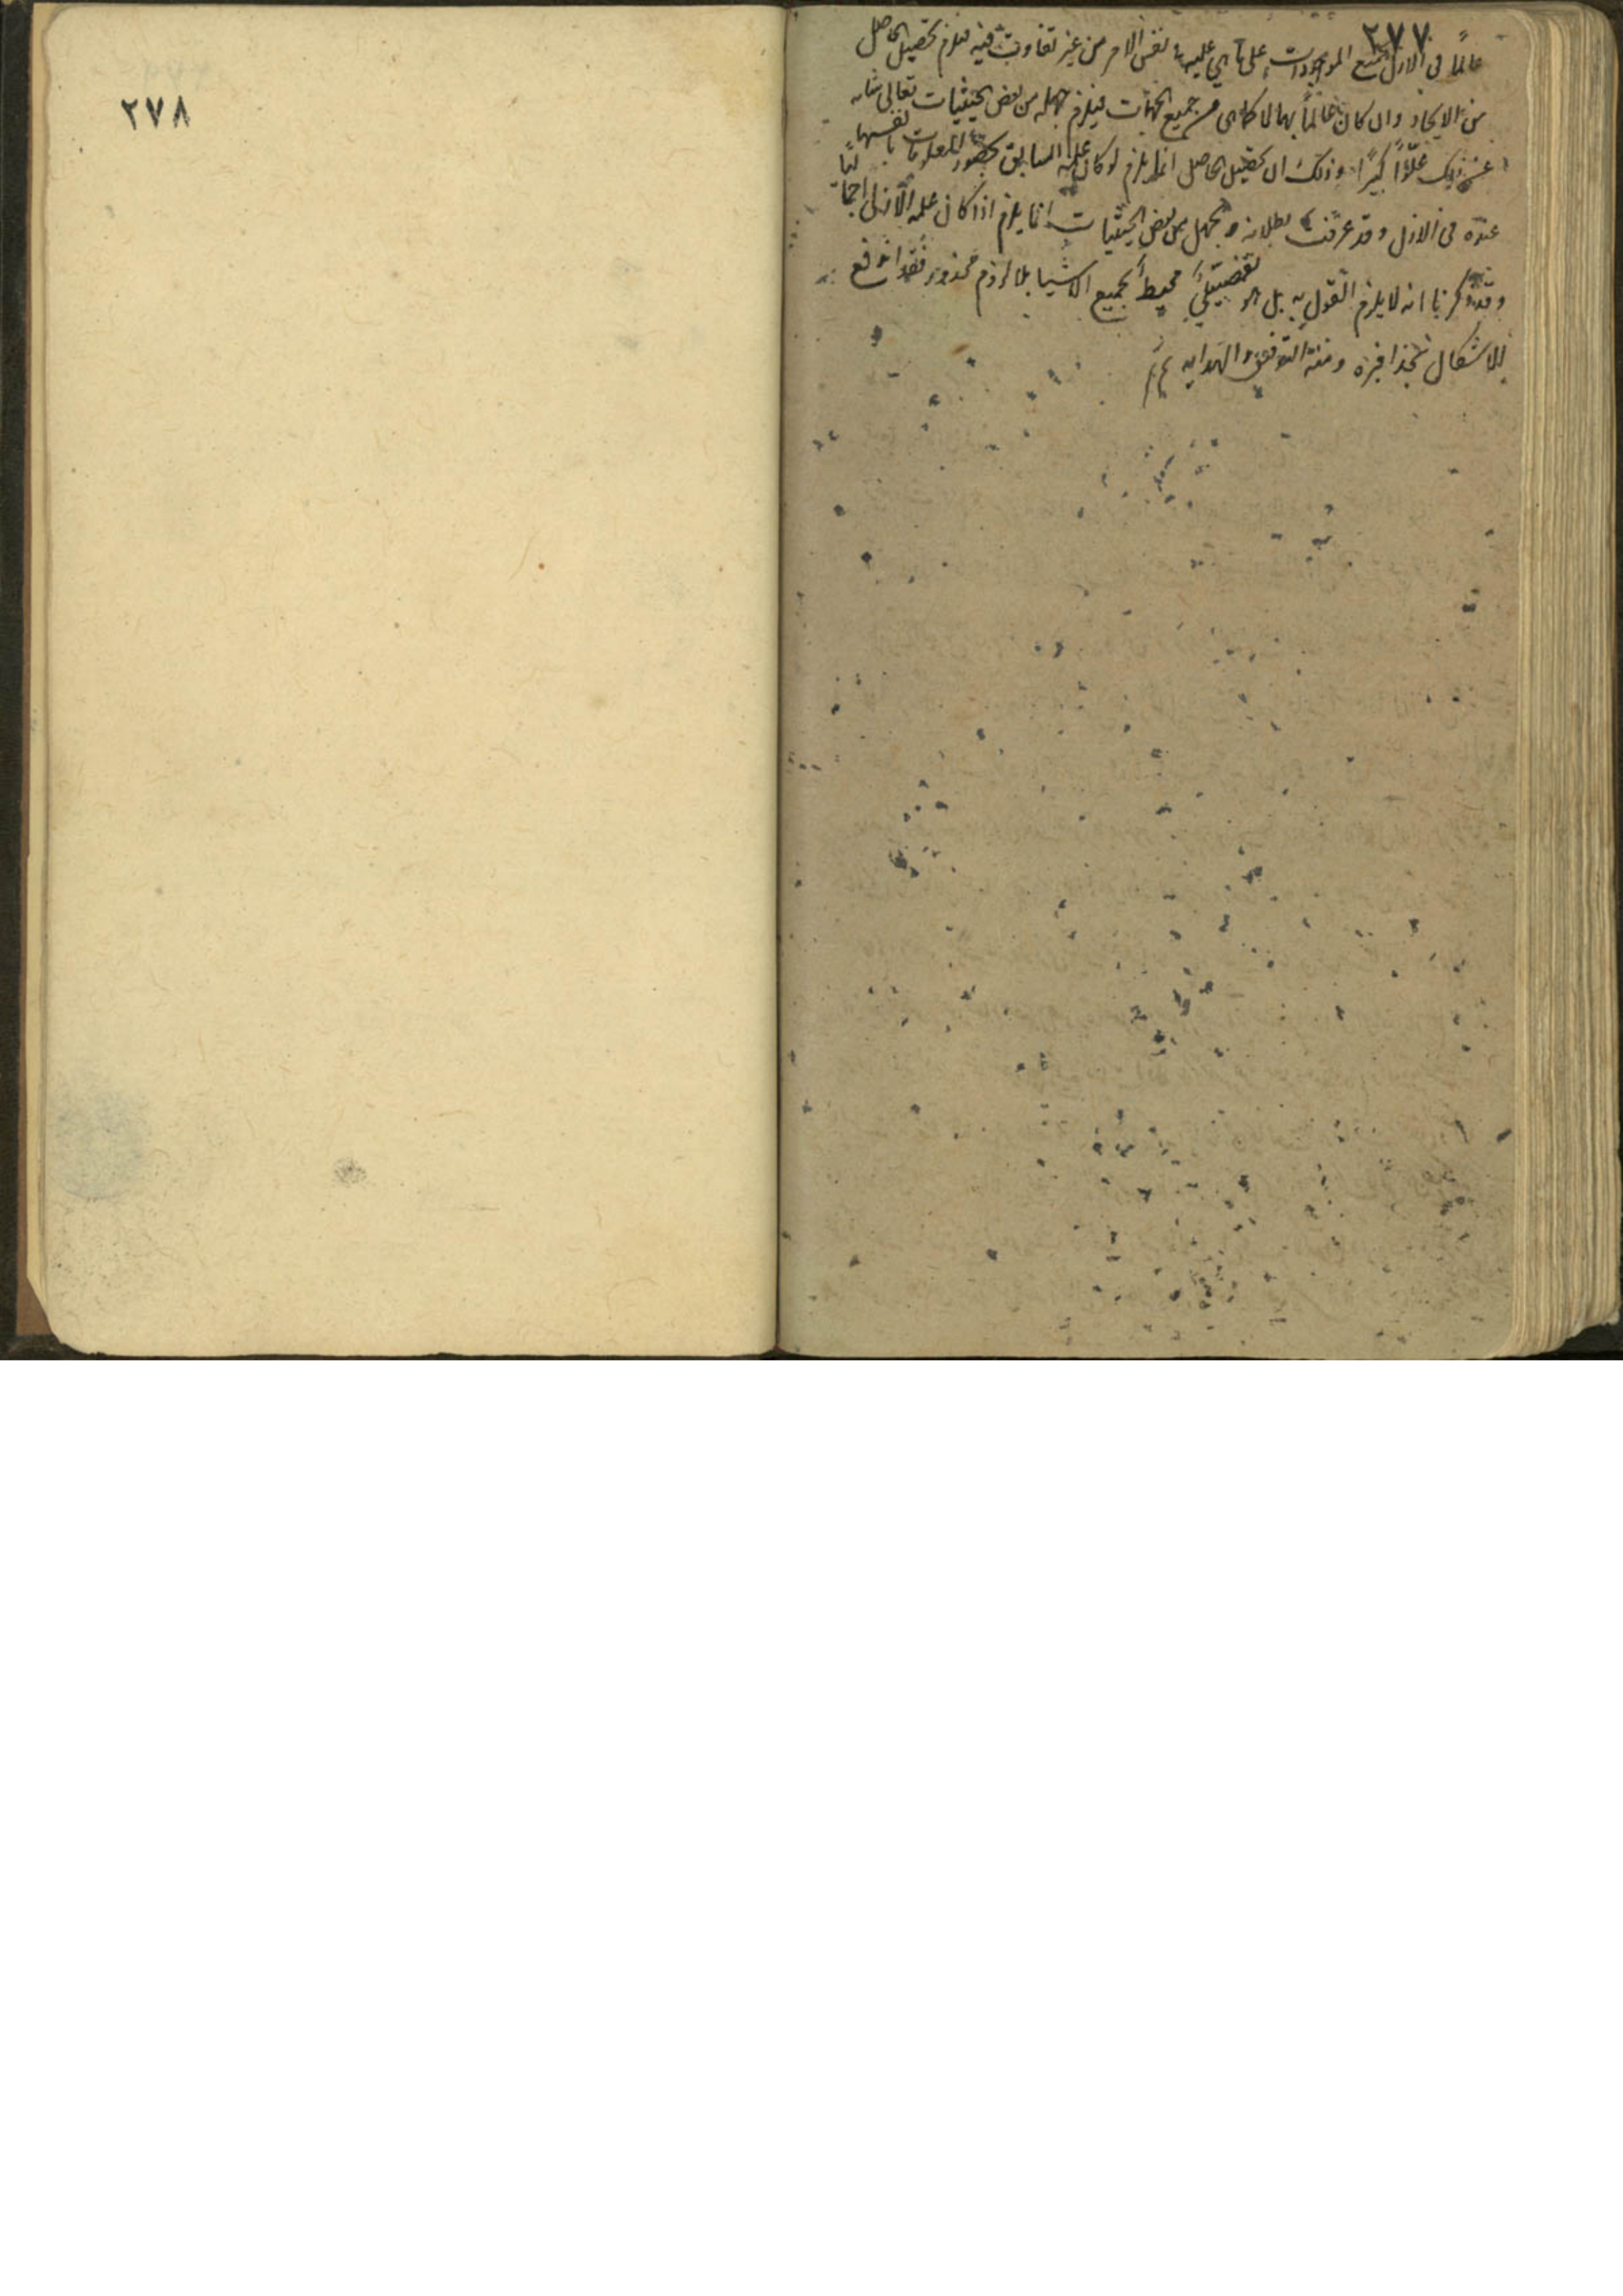 ٢٧٧
عالمًا فى الازل بجميع الموجودات على ما هي عليه فى نفس الامر من غير تفاوت فيه فيلزم تحصيل الحاصل
من الايجاد وان كان عالمًا بها لا كما هى من جميع الجهات فيلزم جهله من بعض الحيثيات تعالى شانه
عن ذلك علوًّا كبيرًا وذلك ان تحصيل الحاصل انما يلزم لو كان علمه السابق بحضور المعلومات بانفسها
عنده فى الازل وقد عرفت بطلانه والجهل من بعض الحيثيات انما يلزم اذا كان علمه الازلى اجماليًا
وقد ذكرنا انه لا يلزم القول به بل هو تفصيليّ محيط بجميع الاشيا بلا لزوم محذور فقد اندفع
الاشكال بحذافيره ومنه التوفيق والهدايه تم
٢٧٨